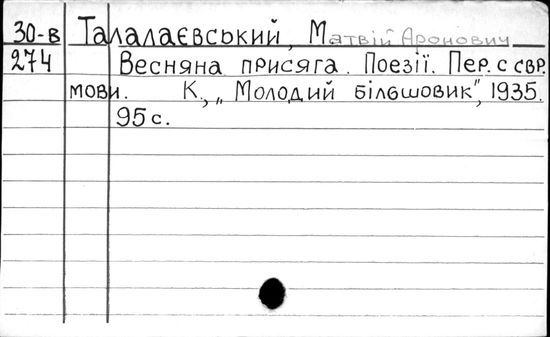 30-в Талалаєвський, Матвій Аронович
274 Весняна присяга. Поезії. Пер. с євр.
мови. К., „Молодий більшовик", 1935.
95 с.